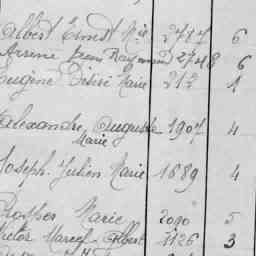 Albert Ernest Marie 2717 6
Arsène Jean Raymond 2748 6
Eugène Désiré Marie 212 1
Alexandre Auguste 1907 4
Marie
Joseph Julien Marie 1689 4
Prosper Marie 2010 5
Victor Marcel Albert 1126 3